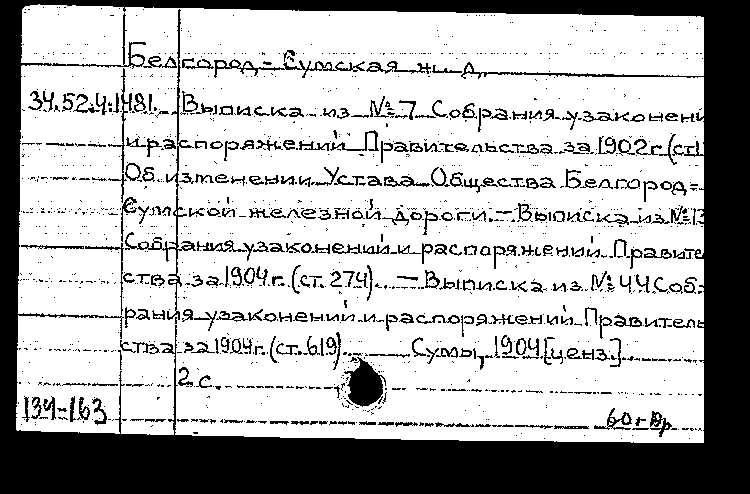 Белгород-Сумская ж. д.
34.52.4.1481. Выписка из №7 Собрания узаконени
и распоряжений Правительства за 1902 г. (ст.
Об изменении Устава Общества Белгород-
Сумской железной дороги. - Выписка из №13
Собрания узаконений и распоряжений Правите
ства за 1904 г. (ст. 274). - Выписка из №44 Соб-
рания узаконений и распоряжений Правитель
ства за 1904 г. (ст. 619). Сумы, 1904 [ценз.].
2 с.
134-163